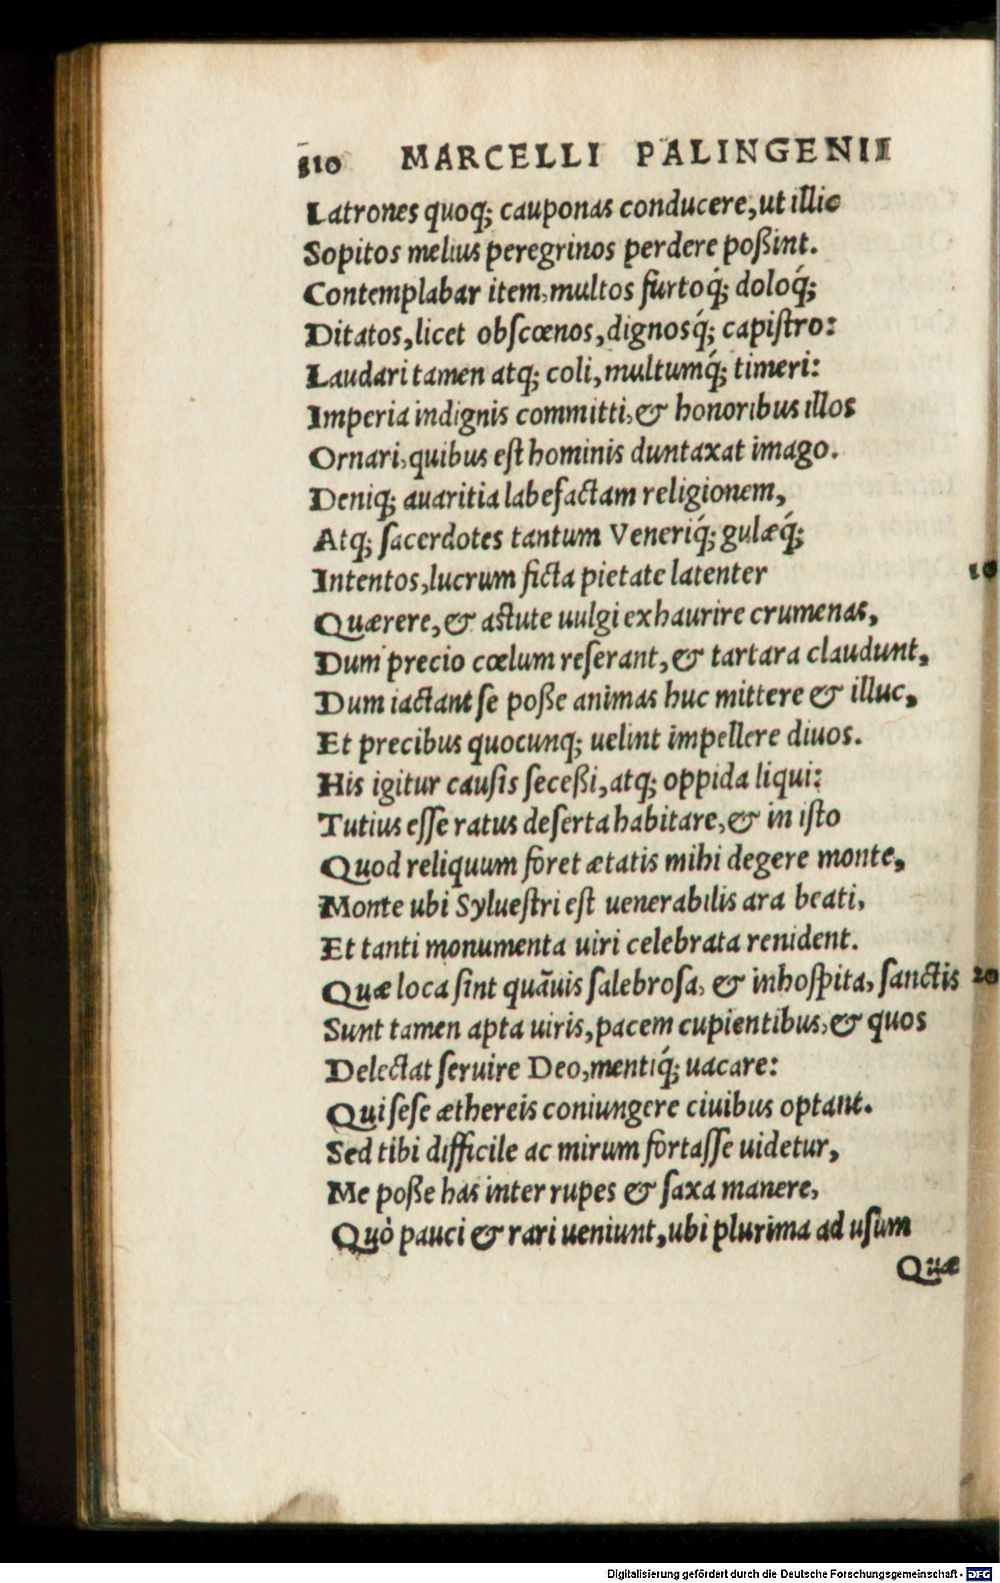 310 MARCELLI PALINGENII
Latrones quoq; cauponas conducere, ut illic
Sopitos melius peregrinos perdere poßint.
Contemplabar item, multos furtoq́; doloq́;
Ditatos, licet obscœnos, dignosq́; capistro:
Laudari tamen atq; coli, multumq́; timeri:
Imperia indignis committi, & honoribus illos
Ornari, quibus est hominis duntaxat imago.
Deniq; auaritia labefactam religionem,
Atq; sacerdotes tantum Veneriq́; gulæq́;
Intentos, lucrum ficta pietate latenter 10
Quærere, & astute uulgi exhaurire crumenas,
Dum precio cœlum reserant, & tartara claudunt,
Dum iactant se poße animas huc mittere & illuc,
Et precibus quocunq; uelint impellere diuos.
His igitur causis seceßi, atq; oppida liqui:
Tutius esse ratus deserta habitare, & in isto
Quod reliquum foret ætatis mihi degere monte,
Monte ubi Syluestri est uenerabilis ara beati,
Et tanti monumenta uiri celebrata renident.
Quæ loca sint quãuis salebrosa, & inhospita, sanctis 20
Sunt tamen apta uiris, pacem cupientibus, & quos
Delectat seruire Deo, mentiq́; uacare:
Qui sese æthereis coniungere ciuibus optant.
Sed tibi difficile ac mirum fortasse uidetur,
Me poße has inter rupes & saxa manere,
Quò pauci & rari ueniunt, ubi plurima ad usum
Quæ
Digitalisierung gefördert durch die Deutsche Forschungsgemeinschaft - DFG